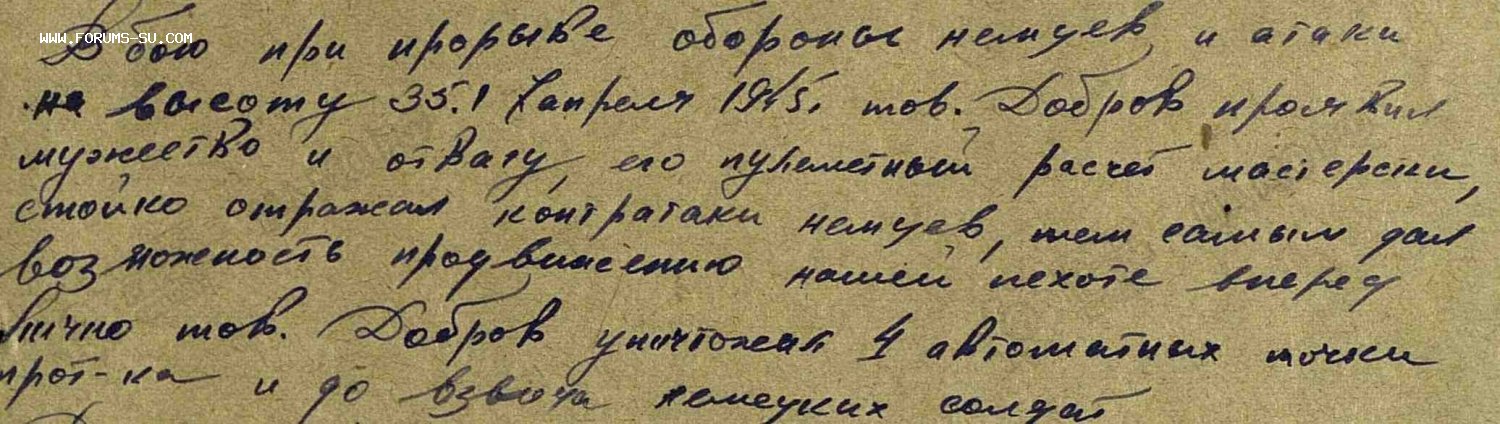 WWW.FORUMS-SU.COM
В бою при прорыве обороны немцев, и атаки
на высоту 35.1 7 апреля 1945г. тов. Добров проявил
мужество и отвагу, его пулеметный расчет мастерски,
стойко отражал контратаки немцев, тем самым дал
возможность продвижению нашей пехоте вперед
Лично тов. Добров уничтожил 4 автоматных точки
прот-ка и до взвода немецких солдат